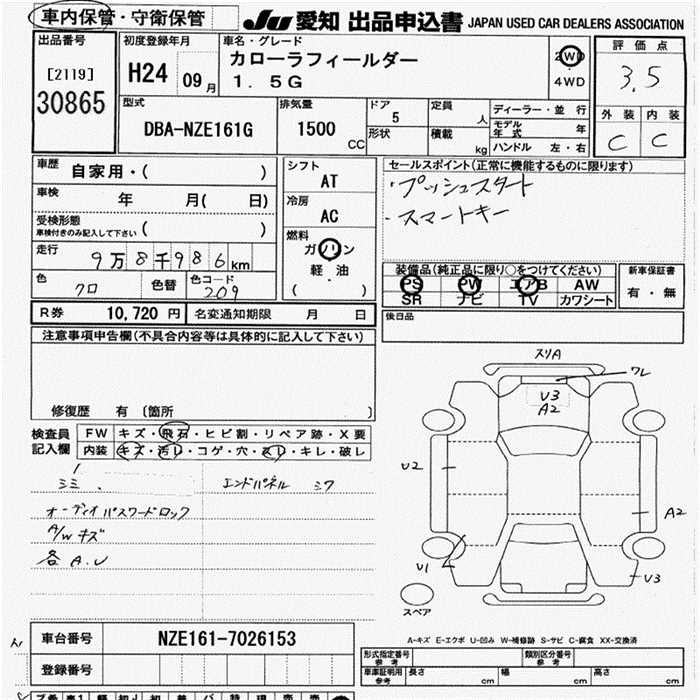 車内保管・守衛保管
JU 愛知 出品申込書 JAPAN USED CAR DEALERS ASSOCIATION
出品番号
[2119]
30865
初度登録年月
H24 09月
車名・グレード
カローラフィールダー
1.5G
2WD
4WD
評価点
3.5
外装 内装
C C
型式
DBA-NZE161G
排気量
1500
CC
ドア
5
形状
定員
人
積載
kg
ディーラー・並行
モデル年式
年
ハンドル 左・右
車歴
自家用・( )
車検
年 月( 日)
受検形態
車検付きのみ記入して下さい ( )
走行
9万8千986km
色
クロ
色替
色コード
209
シフト
AT
冷房
AC
燃料
ガソリン
軽油
( )
セールスポイント(正常に機能するものに限ります)
・プッシュスタート
・スマートキー
装備品(純正品に限り○をつけてください)
PS PW エアB AW
SR ナビ TV カワシート
新車保証書
有・無
R券 10,720 円
名変通知期限 月 日
後日品
注意事項申告欄(不具合内容等は具体的に記入して下さい)
修復歴 有 〔箇所 〕
検査員
記入欄
FW キズ・飛石・ヒビ割・リペア跡・X要
内装 キズ・汚レ・コゲ・穴・スレ・キレ・破レ
ミミ
エンドパネル ミワ
オーディオパスワードロック
A/W キズ
各A.U
スリA
ワレ
U3
A2
U2
A2
U1
U3
スペア
A-キズ E-エクボ U-凹み W-補修跡 S-サビ C-腐食 XX-交換済
車台番号
NZE161-7026153
登録番号
形式指定番号
参考
類別区分番号
参考
車庫証明用
参考
長さ
cm
幅
cm
高さ
cm